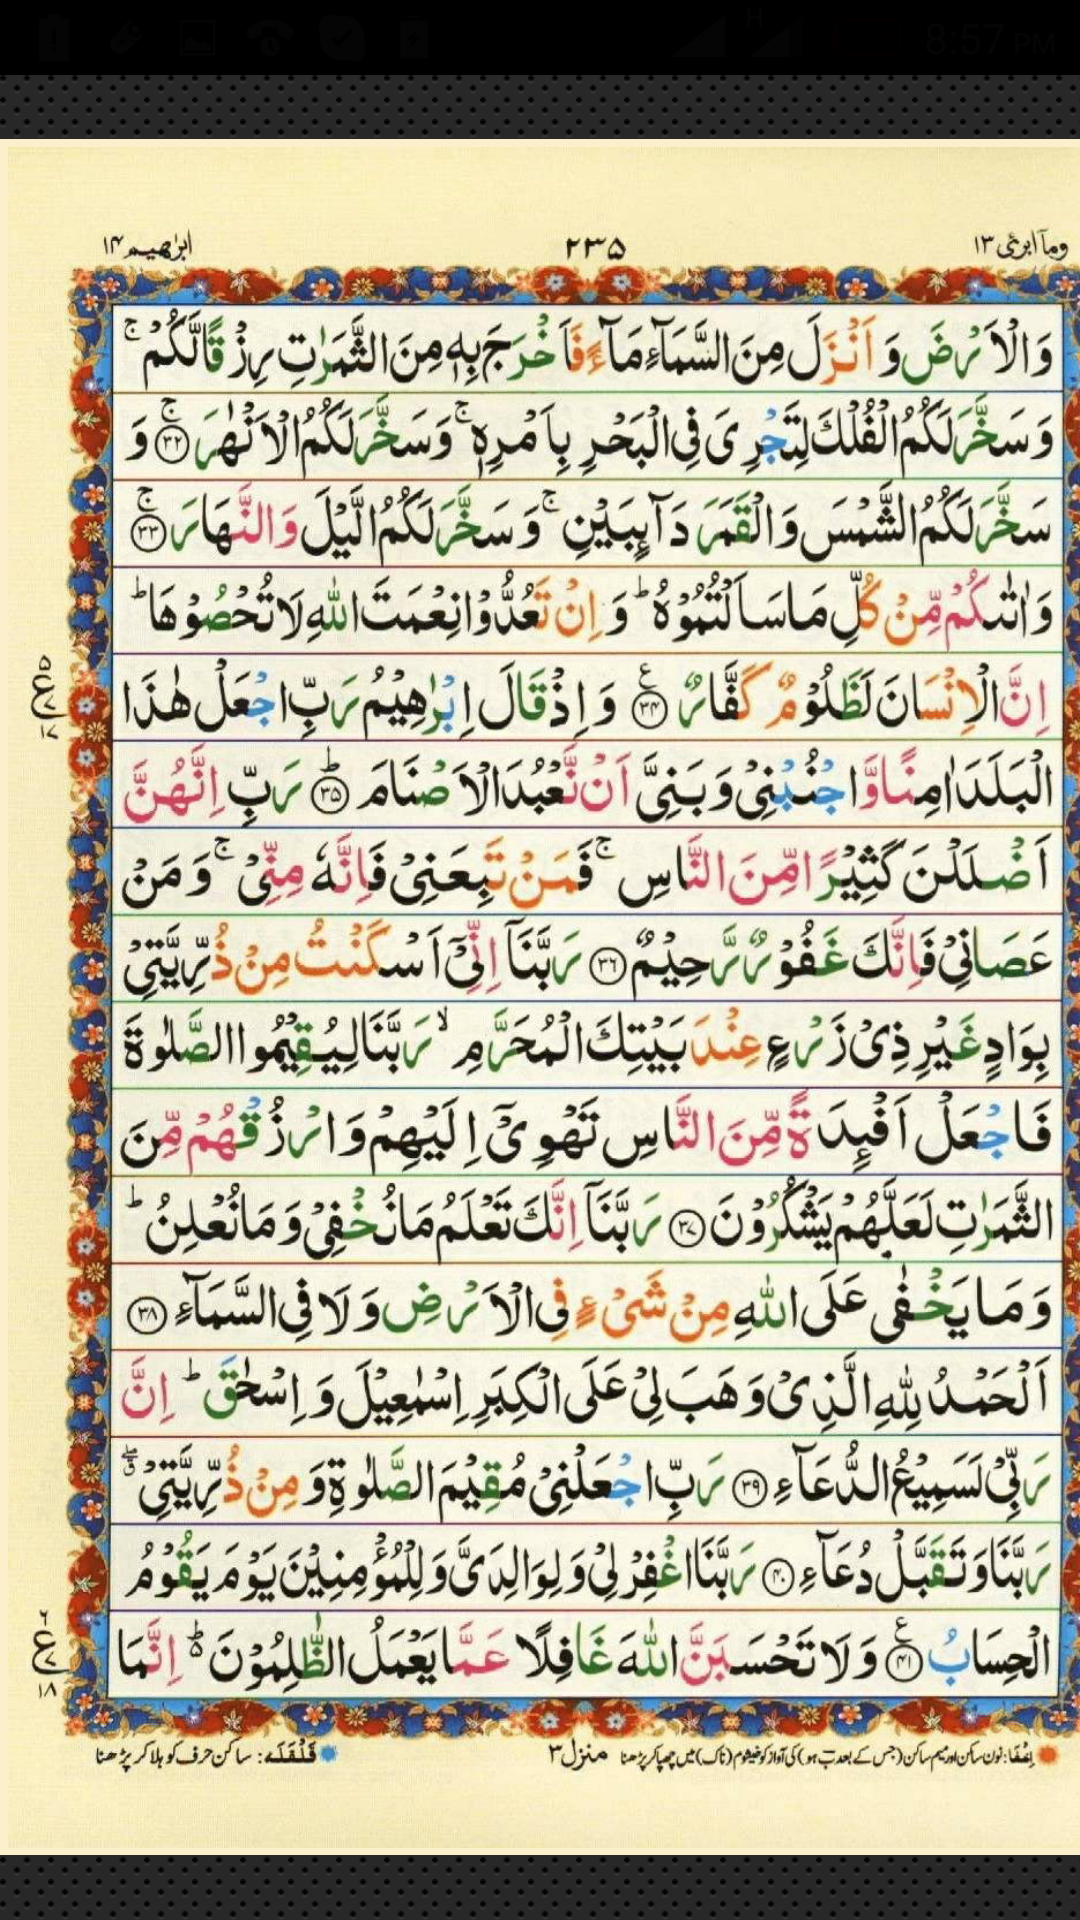 8:57 PM
وما ابرئ ١٣
٢٣٥
ابرٰهیم ١۴
وَالۡاَرۡضَ وَاَنۡزَلَ مِنَ السَّمَآءِ مَآءً فَاَخۡرَجَ بِهٖ مِنَ الثَّمَرٰتِ رِزۡقًا لَّكُمۡ ۚ
وَسَخَّرَ لَكُمُ الۡفُلۡكَ لِتَجۡرِىَ فِى الۡبَحۡرِ بِاَمۡرِهٖ ۚ وَسَخَّرَ لَكُمُ الۡاَنۡهٰرَ ۚ ﴿۳۲﴾ وَ
سَخَّرَ لَكُمُ الشَّمۡسَ وَالۡقَمَرَ دَآئِبَيۡنِ ۚ وَسَخَّرَ لَكُمُ الَّيۡلَ وَالنَّهَارَ ۚ ﴿۳۳﴾
وَاٰتٰٮكُمۡ مِّنۡ كُلِّ مَا سَاَلۡتُمُوۡهُ ؕ وَاِنۡ تَعُدُّوۡا نِعۡمَتَ اللّٰهِ لَا تُحۡصُوۡهَا ؕ
اِنَّ الۡاِنۡسَانَ لَظَلُوۡمٌ كَفَّارٌ ﴿۳۴﴾ ع وَاِذۡ قَالَ اِبۡرٰهِيۡمُ رَبِّ اجۡعَلۡ هٰذَا
ع ۵ ۷ ۱۷
الۡبَلَدَ اٰمِنًا وَّاجۡنُبۡنِىۡ وَبَنِىَّ اَنۡ نَّعۡبُدَ الۡاَصۡنَامَ ؕ ﴿۳۵﴾ رَبِّ اِنَّهُنَّ
اَضۡلَلۡنَ كَثِيۡرًا مِّنَ النَّاسِ ۚ فَمَنۡ تَبِعَنِىۡ فَاِنَّهٗ مِنِّىۡ ۚ وَمَنۡ
عَصَانِىۡ فَاِنَّكَ غَفُوۡرٌ رَّحِيۡمٌ ﴿۳۶﴾ رَبَّنَاۤ اِنِّىۡۤ اَسۡكَنۡتُ مِنۡ ذُرِّيَّتِىۡ
بِوَادٍ غَيۡرِ ذِىۡ زَرۡعٍ عِنۡدَ بَيۡتِكَ الۡمُحَرَّمِ ۙ رَبَّنَا لِيُقِيۡمُوا الصَّلٰوةَ
فَاجۡعَلۡ اَفۡئِدَةً مِّنَ النَّاسِ تَهۡوِىۡۤ اِلَيۡهِمۡ وَارۡزُقۡهُمۡ مِّنَ
الثَّمَرٰتِ لَعَلَّهُمۡ يَشۡكُرُوۡنَ ﴿۳۷﴾ رَبَّنَاۤ اِنَّكَ تَعۡلَمُ مَا نُخۡفِىۡ وَمَا نُعۡلِنُ ؕ
وَمَا يَخۡفٰى عَلَى اللّٰهِ مِنۡ شَىۡءٍ فِى الۡاَرۡضِ وَلَا فِى السَّمَآءِ ﴿۳۸﴾
اَلۡحَمۡدُ لِلّٰهِ الَّذِىۡ وَهَبَ لِىۡ عَلَى الۡكِبَرِ اِسۡمٰعِيۡلَ وَاِسۡحٰقَ ؕ اِنَّ
رَبِّىۡ لَسَمِيۡعُ الدُّعَآءِ ﴿۳۹﴾ رَبِّ اجۡعَلۡنِىۡ مُقِيۡمَ الصَّلٰوةِ وَمِنۡ ذُرِّيَّتِىۡ ۖ
رَبَّنَا وَتَقَبَّلۡ دُعَآءِ ﴿۴۰﴾ رَبَّنَا اغۡفِرۡ لِىۡ وَلِوَالِدَىَّ وَلِلۡمُؤۡمِنِيۡنَ يَوۡمَ يَقُوۡمُ
الۡحِسَابُ ﴿۴۱﴾ ع وَلَا تَحۡسَبَنَّ اللّٰهَ غَافِلًا عَمَّا يَعۡمَلُ الظّٰلِمُوۡنَ ؕ اِنَّمَا
ع ۶ ۷ ۱۸
اِخفَا: نون ساکن اور میم ساکن (جس کے بعد ب ہو) کی آواز کو خیشوم (ناک) میں چھپا کر پڑھنا
منزل ٣
قَلْقَلَه: ساکن حرف کو ہلا کر پڑھنا